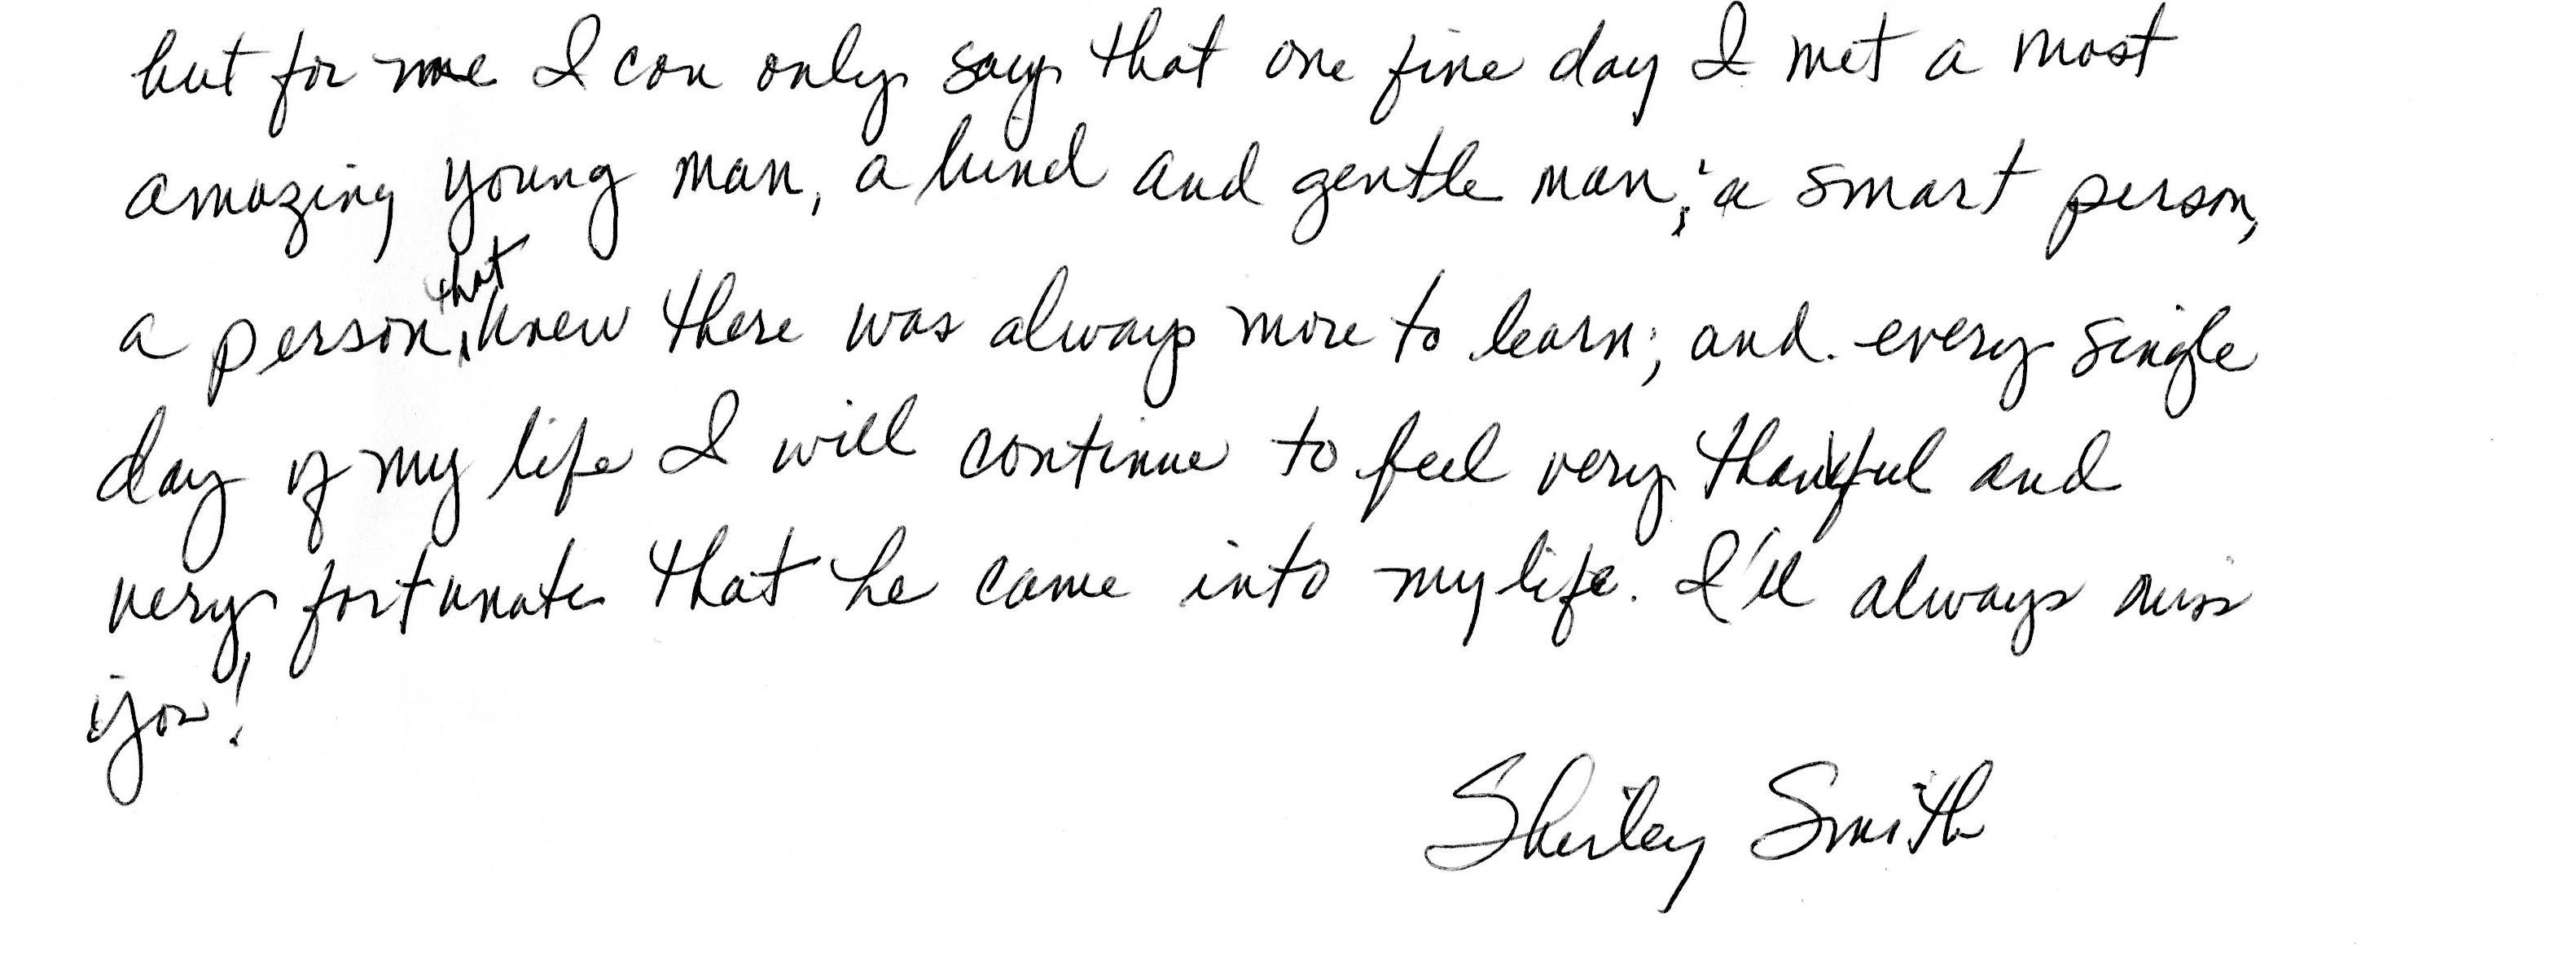 but for me I can only say that one fine day I met a most
amazing young man, a kind and gentle man, a smart person,
a person that knew there was always more to learn; and every single
day of my life I will continue to feel very thankful and
very fortunate that he came into my life. I'll always miss
you!
Shirley Smith